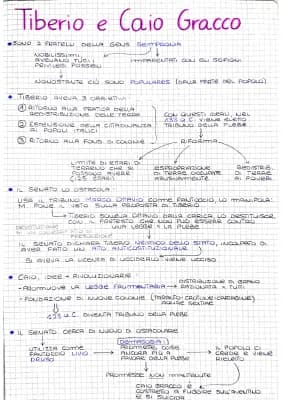 Tiberio e Caio Gracco
SONO 2 FRATELLI DELLA GENS SEMPRONIA
NOBILISSIMI,
AVEVANO TUTTI
PRIVILEGI POSSIBILI
IMPARENTATI CON GLI SCIPIONI
NONOSTANTE CIÒ SONO POPULARES (DALLA PARTE DEL POPOLO)
TIBERIO AVEVA 3 OBIETTIVI:
① RITORNO ALLA PRATICA DELLA
REDISTRIBUZIONE DELLE TERRE
② ESTENSIONE DELLA CITTADINANZA
AI POPOLI ITALICI
③ RITORNO ALLA FOND. DI COLONIE
CON QUESTI IDEALI, NEL
133 a.C. VIENE ELETTO
TRIBUNO DELLA PLEBE
RIFORMA
LIMITE DI ETTARI DI
TERRENO CHE SI
POSSONO AVERE
(125 ETTARI)
ESPROPRIAZIONE
DI TERRE OCCUPATE
ABUSIVAMENTE
REDISTRIB.
DI TERRE
AI POVERI
IL SENATO LO OSTACOLA:
USA IL TRIBUNO MARCO OTTAVIO COME FANTOCCIO, LO MANIPOLA:
M. PONE IL VETO SULLA PROPOSTA DI TIBERIO
TIBERIO SOLLEVA OTTAVIO DALLA CARICA, LO DESTITUISCE
CON IL PRETESTO CHE NON PUÒ ESSERE CONTRO
UNA LEGGE X LA PLEBE
IL SENATO DICHIARA TIBERIO NEMICO DELLO STATO, INCOLPATO DI
AVER FATTO UN ATTO ANTICOSTITUZIONALE
SI AVEVA LA LICENZA DI UCCIDERLO: VIENE UCCISO
CAIO, IDEE + RIVOLUZIONARIE:
PROMUOVE LA LEGGE FRUMENTARIA
DISTRIBUZIONE DI GRANO
RAZIONATA X TUTTI
FONDAZIONE DI NUOVE COLONIE (TARANTO-CROTONE-CARTAGINE)
123 a.C. DIVENTA TRIBUNO DELLA PLEBE
IL SENATO CERCA DI NUOVO DI OSTACOLARE
UTILIZZA COME
FANTOCCIO LIVIO
DRUSO
DEMAGOGIA:
PROMETTE COSE
ANCORA PIÙ A
FAVORE DELLA PLEBE
IL POPOLO CI
CREDE E VIENE
PROMESSE NON MANTENUTE
CAIO GRACCO È
COSTRETTO A FUGGIRE SULL'AVENTINO
E SI SUICIDA